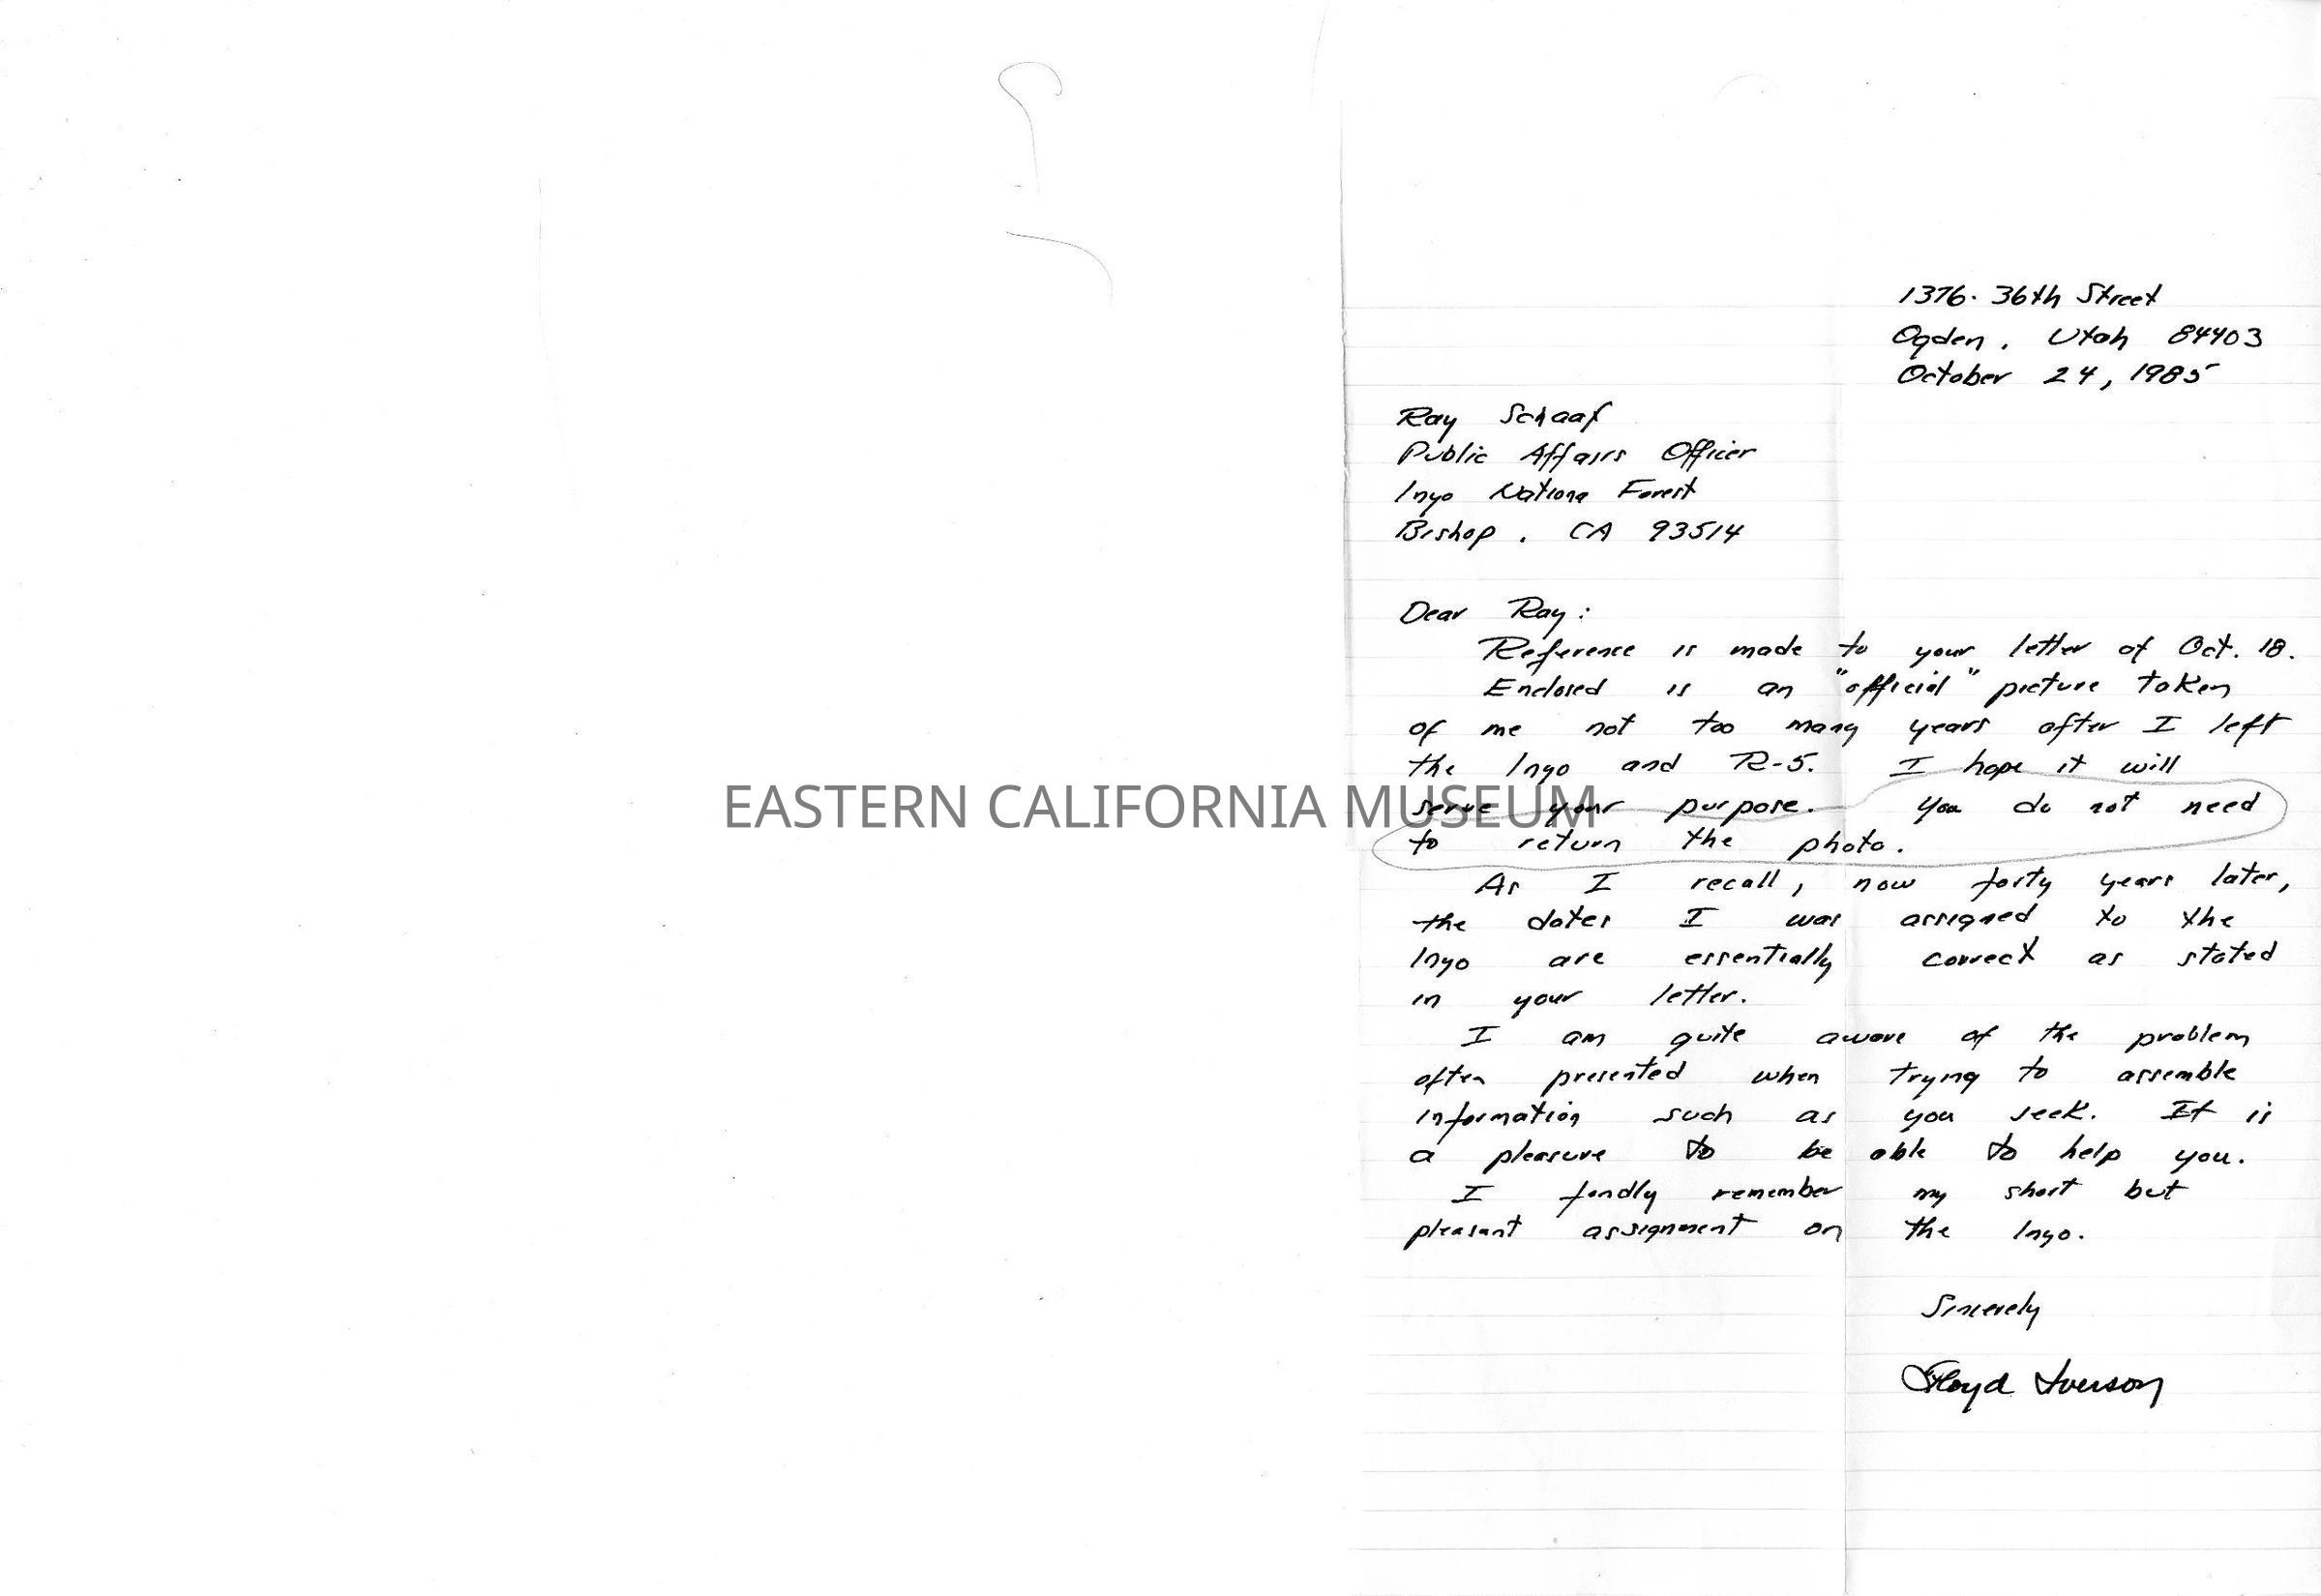 1376. 36th Street
Ogden, Utah 84403
October 24, 1985
Ray Schaaf
Public Affairs Officer
Inyo Nationa Forest
Bishop, CA 93514
Dear Ray:
Reference is made to your letter of Oct. 18.
Enclosed is an "official" picture taken
of me not too many years after I left
the Inyo and R-5. I hope it will
serve your purpose. You do not need
to return the photo.
As I recall, now forty years later,
the dates I was assigned to the
Inyo are essentially correct as stated
in your letter.
I am quite aware of the problem
often presented when trying to assemble
information such as you seek. It is
a pleasure to be able to help you.
I fondly remember my short but
pleasant assignment on the Inyo.
Sincerely
Floyd Iverson
EASTERN CALIFORNIA MUSEUM